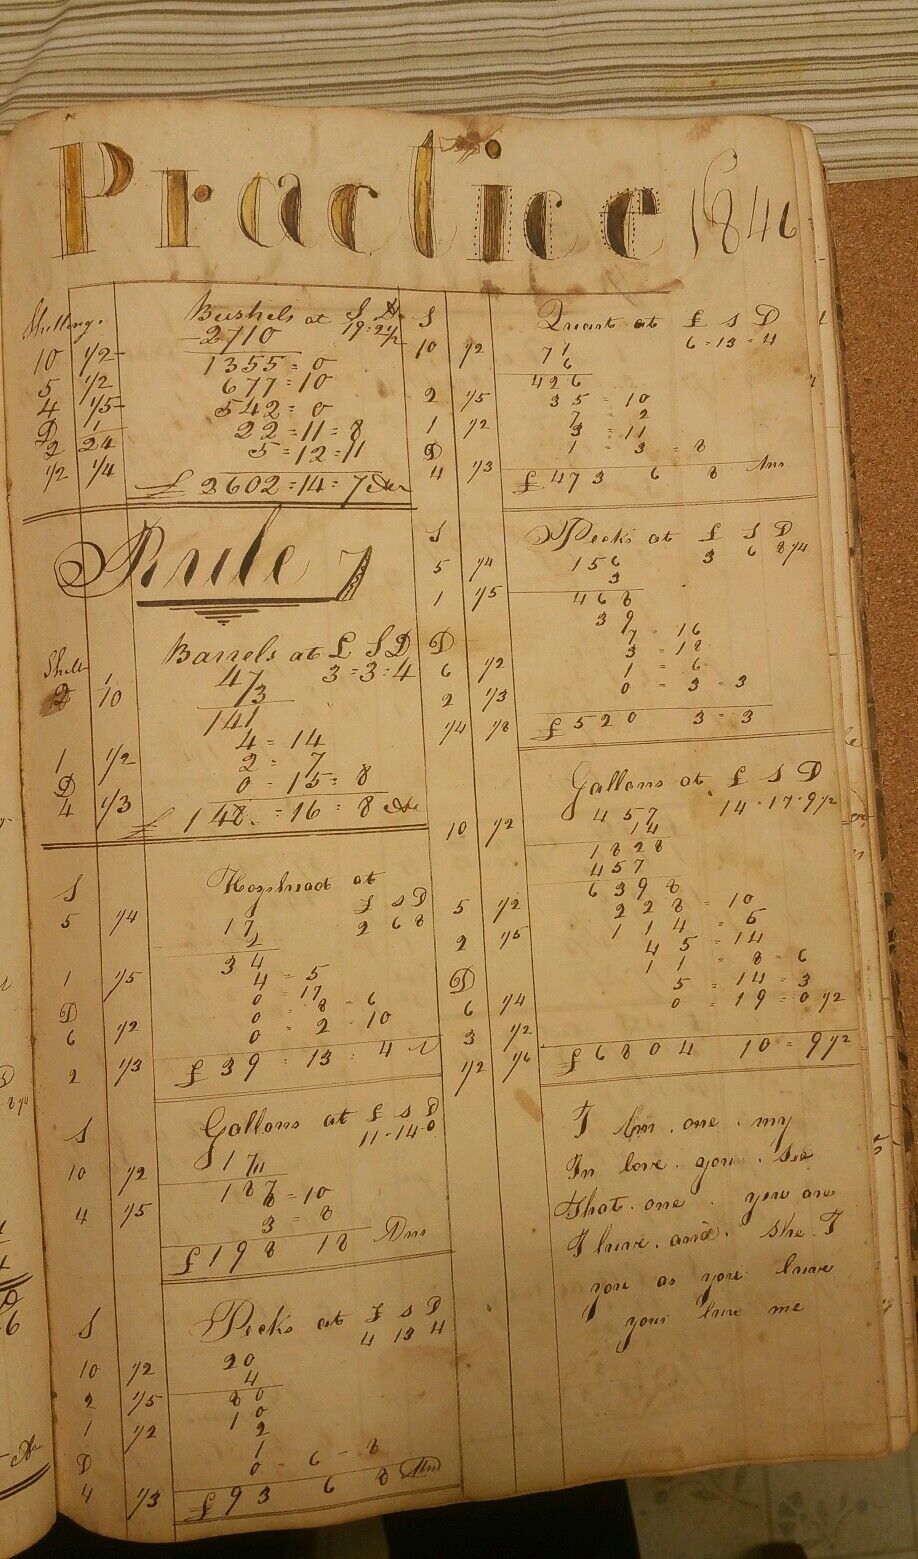 Practice 1846
Shillings
Bushels at £ S D
2710 19=2½
10 1/2 1355=0
5 1/2 677=10
4 1/5 542=0
D 1
2 24 22=11=8
1/2 1/4 5=12=11
£ 2602=14=7 Ans
Rule 7
Barrels at £ S D
Shill
47 3=3=4
2 1/10 3
141
4=14
1 1/2 2=7
D 0=15=8
4 1/3
£ 148=16=8 Ans
S Hogshead at
£ S D
5 1/4 17 2 6 8
2
34
4=5
1 1/5 0=17
D 0=8=6
6 1/2 0=2=10
2 1/3 £39=13=4
S Gallons at £ S D
11-14-0
10 1/2 17
11
187
4 1/5 8=10
3=8
£198 18 Ans
S Pecks at £ S D
4 13 4
10 1/2 20
4
2 1/5 80
10
1 1/2 2
1
D 0=6-8
4 1/3 £93 6 8 Ans
S Quart at £ S D
10 1/2 71 6-13-4
6
426
2 1/5 35=10
7=2
1 1/2 3=11
D 1=3=8
4 1/3 £473 6 8 Ans
S Pecks at £ S D
5 1/4 156 3 6 8 1/4
3
1 1/5 468
39
7=16
D 3=18
6 1/2 1=6
2 1/3 0=3-3
1/4 1/8 £520 3=3
Gallons at £ S D
457 14-17-9 1/2
10 1/2 14
1828
457
6398
5 1/2 228=10
114=5
2 1/5 45=14
D 11=8-6
6 1/4 5=14=3
3 1/2 0=19=0 1/2
1/2 1/6 £6804 10=9 1/2
I Am one my
In love you See
That one you are
I luve and she I
you as you luve
your luve me